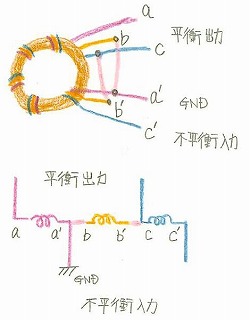 a
平衡出力
b
c
b'
a'
GND
c'
不平衡入力
平衡出力
a a' b b' c c'
GND
不平衡入力